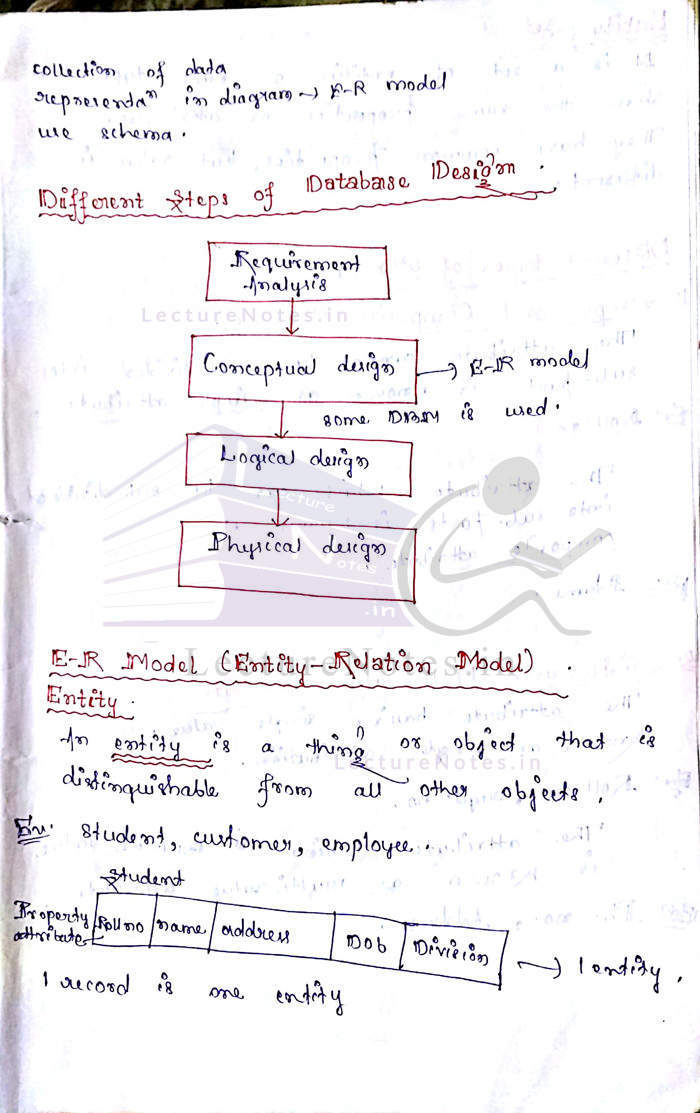 collection of data
representaⁿ in diagram → E-R model
use schema.
Different Steps of Database Design.
Requirement
Analysis
LectureNotes.in
Conceptual design → E-R model
some DBM is used.
Logical design
Lecture
Physical design
Notes
.in
E-R Model (Entity-Relation Model).
LectureNotes.in
Entity.
An entity is a thing or object that is
LectureNotes.in
distinquishable from all other objects.
Ex: Student, customer, employee.
Student
Property
attribute
Rollno name address DOb Division → 1 entity.
1 record is one entity